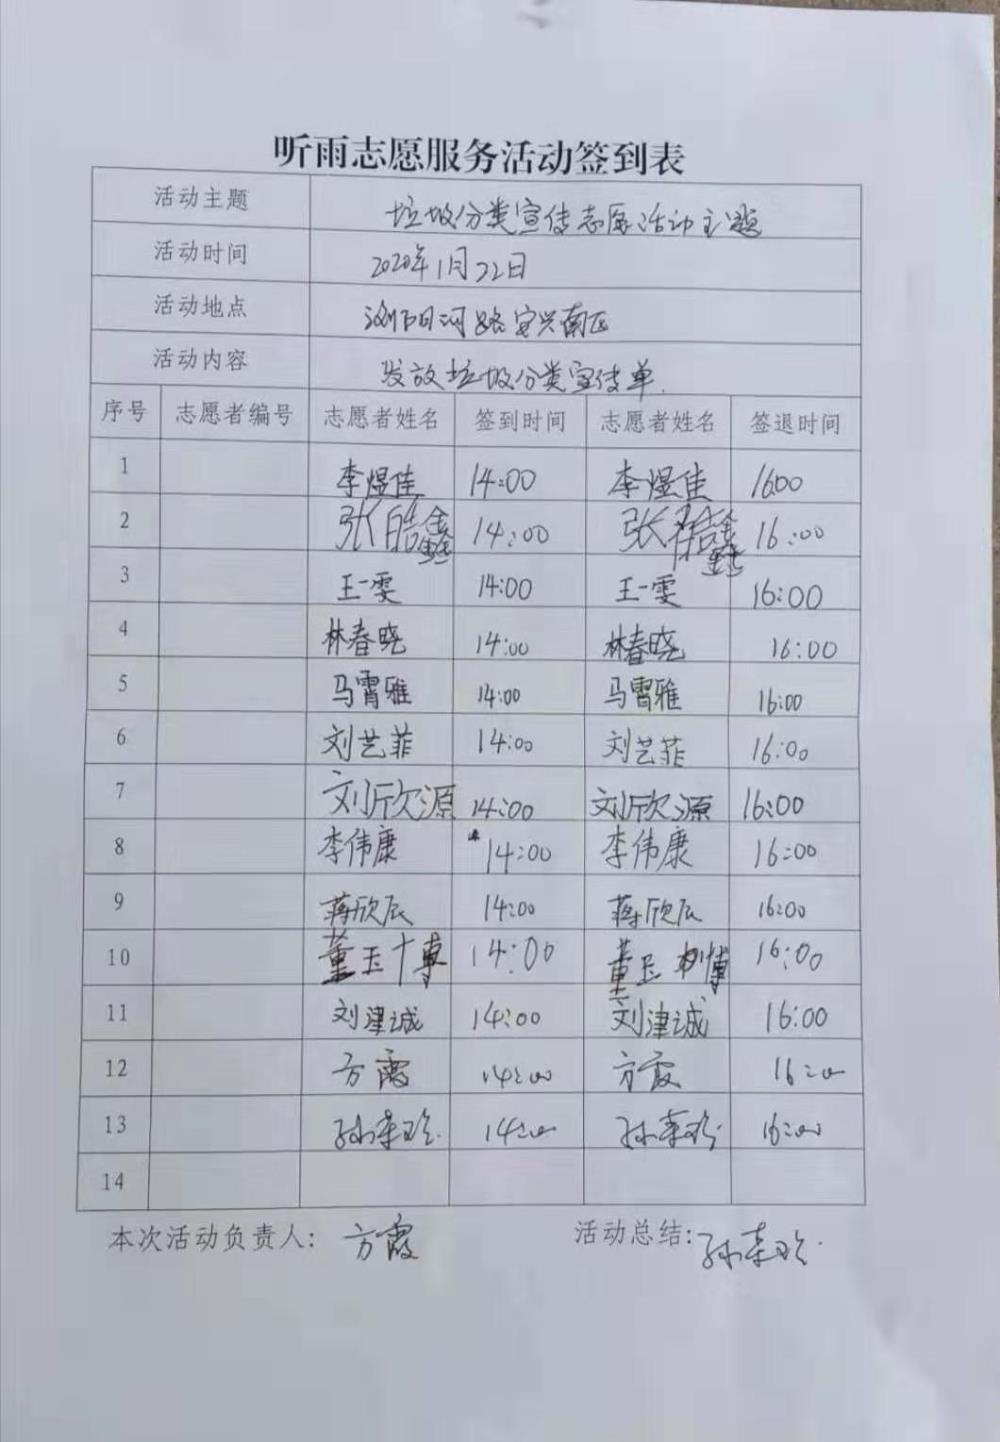 听雨志愿服务活动签到表
活动主题 垃圾分类宣传志愿活动主题
活动时间 2020年1月22日
活动地点 浏阳河路宜兴南区
活动内容 发放垃圾分类宣传单.
序号 志愿者编号 志愿者姓名 签到时间 志愿者姓名 签退时间
1 李煜佳 14:00 李煜佳 16:00
2 张皓鑫 14:00 张皓鑫 16:00
3 王一雯 14:00 王一雯 16:00
4 林春晓 14:00 林春晓 16:00
5 马霄雅 14:00 马霄雅 16:00
6 刘艺菲 14:00 刘艺菲 16:00
7 刘欣源 14:00 刘欣源 16:00
8 李伟康 14:00 李伟康 16:00
9 蒋欣辰 14:00 蒋欣辰 16:00
10 董玉博 14:00 董玉博 16:00
11 刘津诚 14:00 刘津诚 16:00
12 方霞 14:00 方霞 16:00
13 14:00 16:00
14
本次活动负责人: 方霞 活动总结: